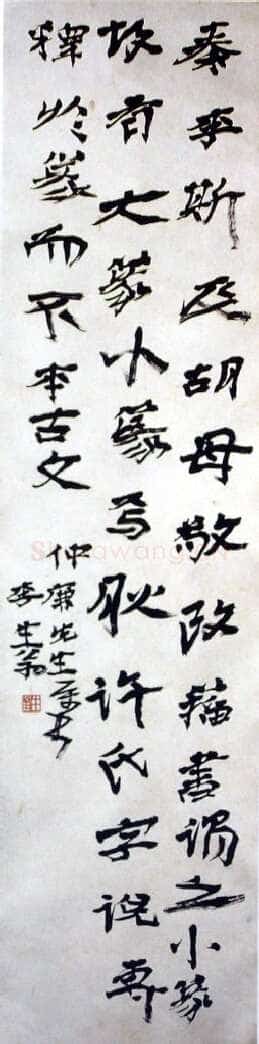 秦李斯及胡母敬改籀書謂之小篆
故有大篆小篆焉耿許氏字説專
釋於篆而不本古文
仲廉先生屬書
李生翁